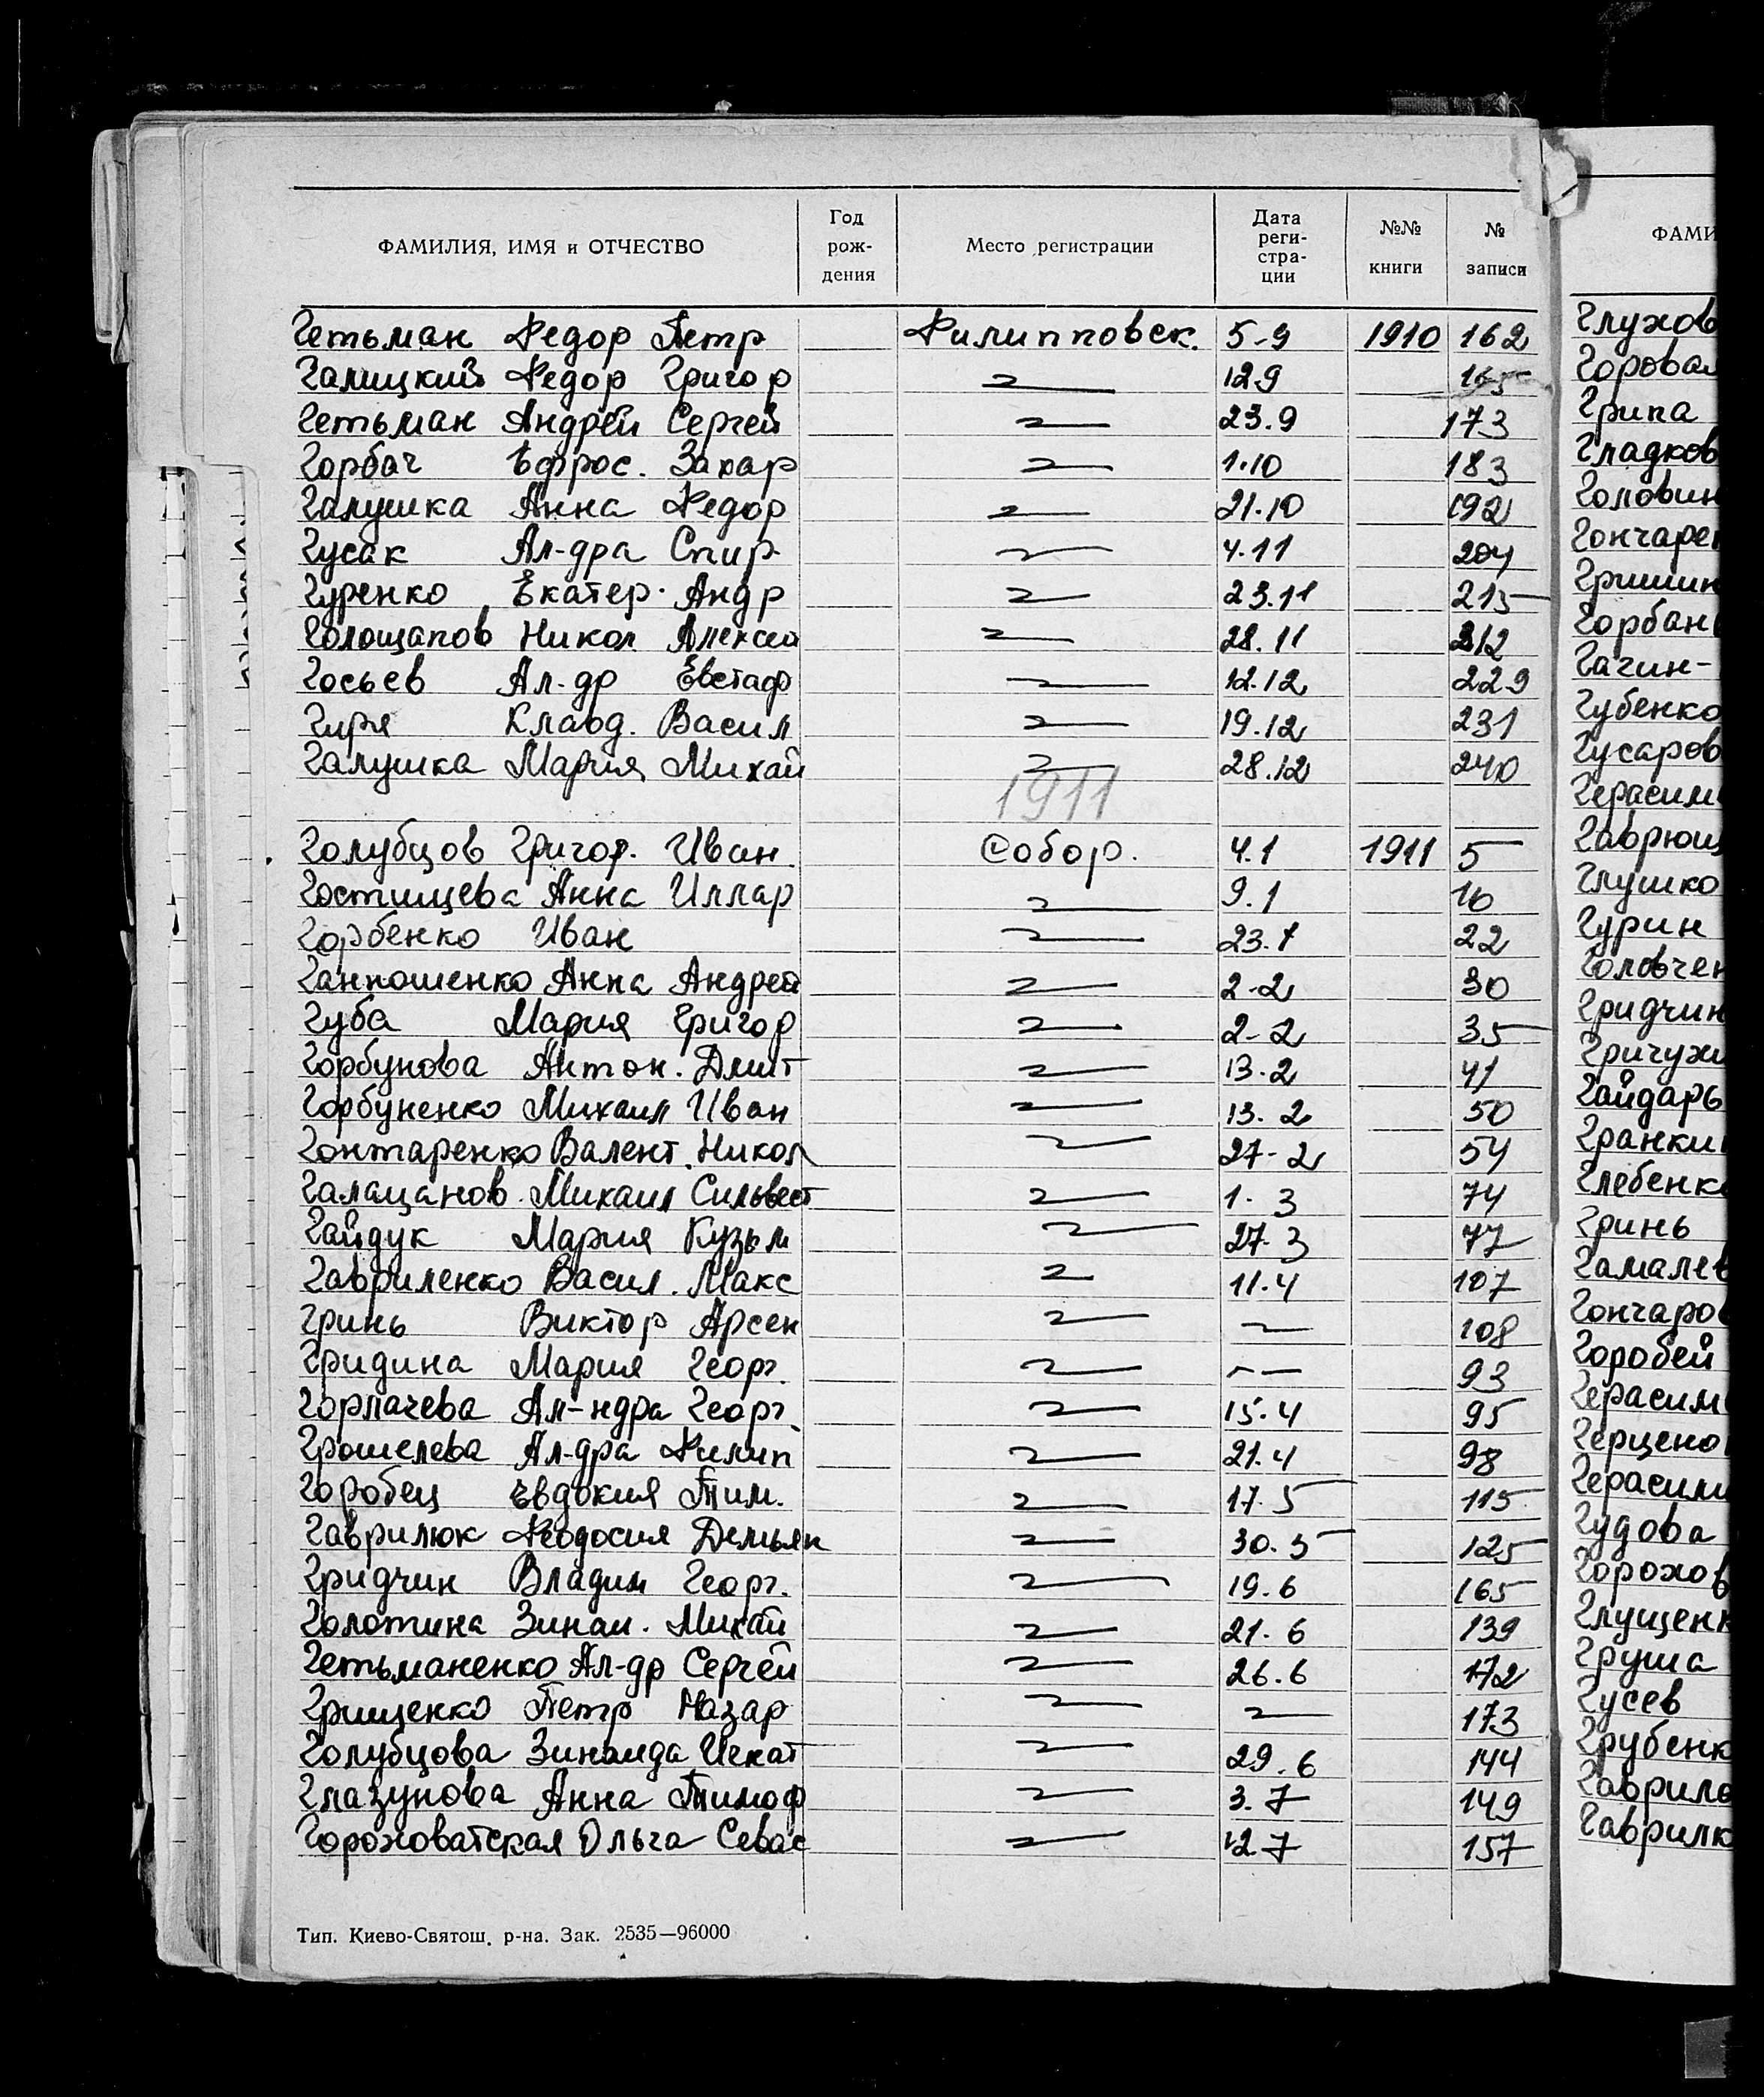 ФАМИЛИЯ, ИМЯ и ОТЧЕСТВО Год рож- дения Место регистрации Дата реги- стра- ции №№ книги № записи
Гетьман Федор Петр Филипповск. 5-9 1910 162
Галицкий Федор Григор 12.9 165
Гетьман Андрей Сергей 23.9 173
Горбач Ефрос. Захар 1.10 183
Галушка Анна Федор 21.10 192
Гусак Ал-дра Спир 4.11 204
Гуренко Екатер. Андр 23.11 215
Голощапов Никол Алексей 28.11 212
Госьев Ал-др Евстаф 12.12 229
Гиря Клавд. Васил 19.12 231
Галушка Мария Михай 28.12 240
1911
Голубцов Григор. Иван. Собор. 4.1 1911 5
Гостищева Анна Иллар 9.1 16
Горбенко Иван 23.1 22
Ганношенко Анна Андрей 2-2 30
Губа Мария Григор 2-2 35
Горбунова Антон. Дмит 13.2 41
Горбуненко Михаил Иван 13.2 50
Гонтаренко Валент. Никол 27-2 54
Галацанов Михаил Сильвест 1.3 74
Гайдук Мария Кузьм 27.3 77
Гавриленко Васил. Макс 11.4 107
Гринь Виктор Арсен 108
Гридина Мария Георг. 93
Горлачева Ал-ндра Георг. 15.4 95
Грошелева Ал-дра Филип 21.4 98
Горобец Евдокия Тим. 17.5 115
Гаврилюк Феодосия Демьян 30.5 125
Гридчин Владим Георг. 19.6 165
Голотина Зинаи. Михай 21.6 139
Гетьманенко Ал-др Сергей 26.6 172
Грищенко Петр Назар 173
Голубцова Зинаида Игнат 29.6 144
Глазунова Анна Тимоф 3.7 149
Гороховатская Ольга Севас 12.7 157
Тип. Киево-Святош. р-на. Зак. 2535—96000
ФАМИ
Глухов
Горовая
Грипа
Гладков
Головин
Гончарен
Гришин
Горбан
Гагин-
Губенко
Гусаров
Герасим
Гаврющ
Глушко
Гурин
Головчен
Гридчин
Гричух
Гайдарь
Гранкин
Глебенк
Гринь
Гамалев
Гончаров
Горобей
Герасим
Герцено
Герасим
Гудова
Горохов
Глущенк
Груша
Гусев
Грубенк
Гаврил
Гаврилю